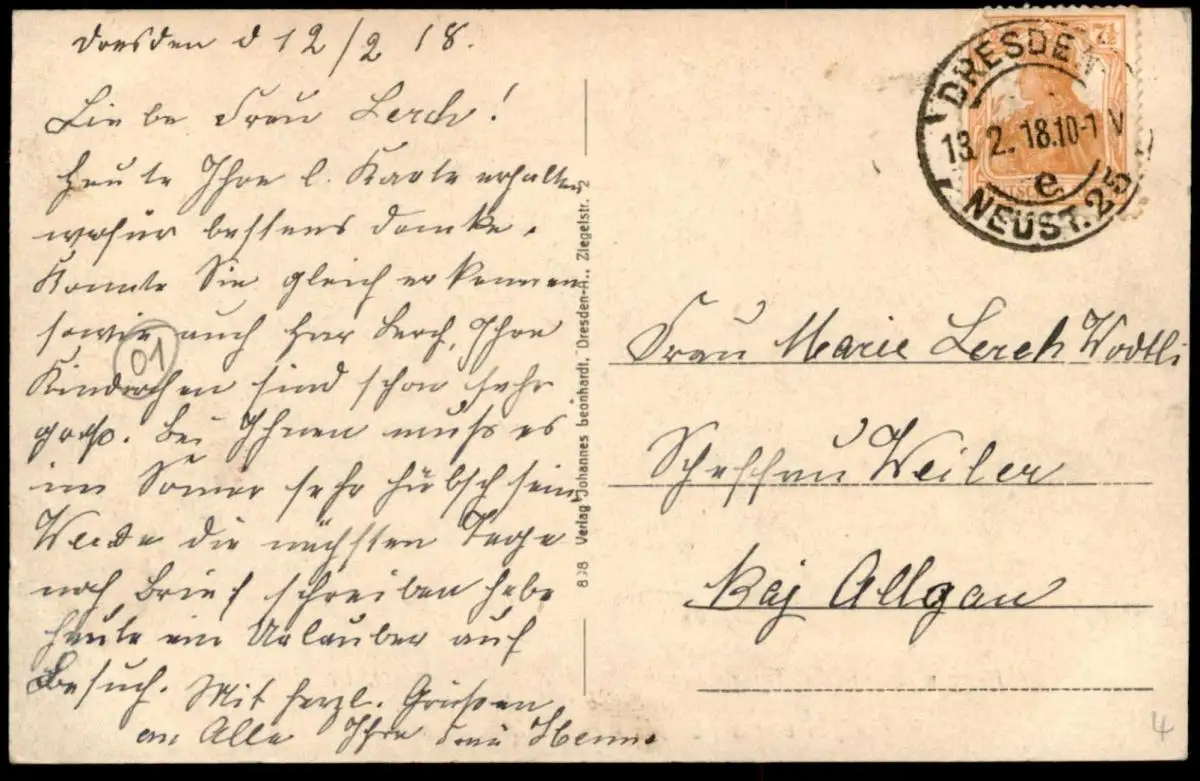 Dresden d 12/2 18.
Liebe Frau Lerch!
Heute Ihre l. Karte erhalten
wofür bestens danke.
Konnte Sie gleich erkennen
sowie auch Her Lerch, Ihre
Kinderchen sind schon sehr
groß. Bei Ihnen muss es
im Somer sehr hübsch sein
Werde die nächsten Tage
noch Brief schreiben habe
heute ein Urlauber auf
Besuch. Mit herzl. Grüßen
an Alle Ihre
01
8 8 Verlag Johannes beonhardt, Dresden-A., Ziegelstr. 2
7½
DRESDEN
13. 2. 18.10-1 V
e
NEUST. 25
Frau Marie Lerch Wodtli
Scheffau Weiler
Baj Allgau
4